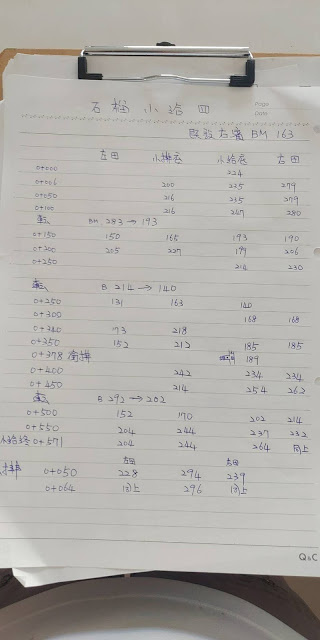 石榴小給四
Page
Date
BM 163
左田 小排左 小給右 右田
0+000 224
0+006 200 235 279
0+050 216 235 279
0+100 216 267 280
BM. 283 → 193
0+150 150 165 193 190
0+200 205 227 199 206
0+250 214 230
B 214 → 140
0+250 131 163 140
0+300 168 168
0+340 73 218
0+350 152 212 185 185
0+378 189
0+400 242 234 234
0+450 214 254 262
B 292 → 202
0+500 152 170 202 214
0+550 204 244 237 232
小給終 0+571 204 244 264 同上
左田 右田
排 0+050 228 294 239
0+064 同上 296 同上